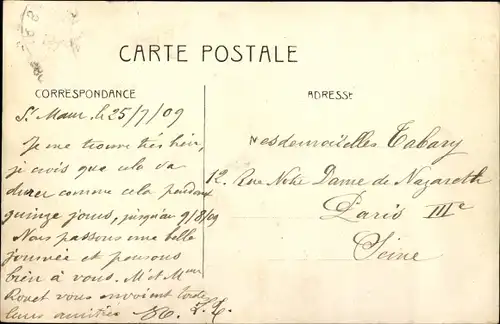 CARTE POSTALE
CORRESPONDANCE
ADRESSE
St Maur, le 25/7/09
Je me trouve très bien,
je crois que cela va
durer comme cela pendant
quinze jours, jusqu'au 9/8/09
Nous passons une belle
journée et pensons
bien à vous. Mr et Mme
vous envoient toutes
leurs amitiés
Mesdemoiselles Tabary
12, Rue Notre Dame de Nazareth
Paris IIIe
Seine